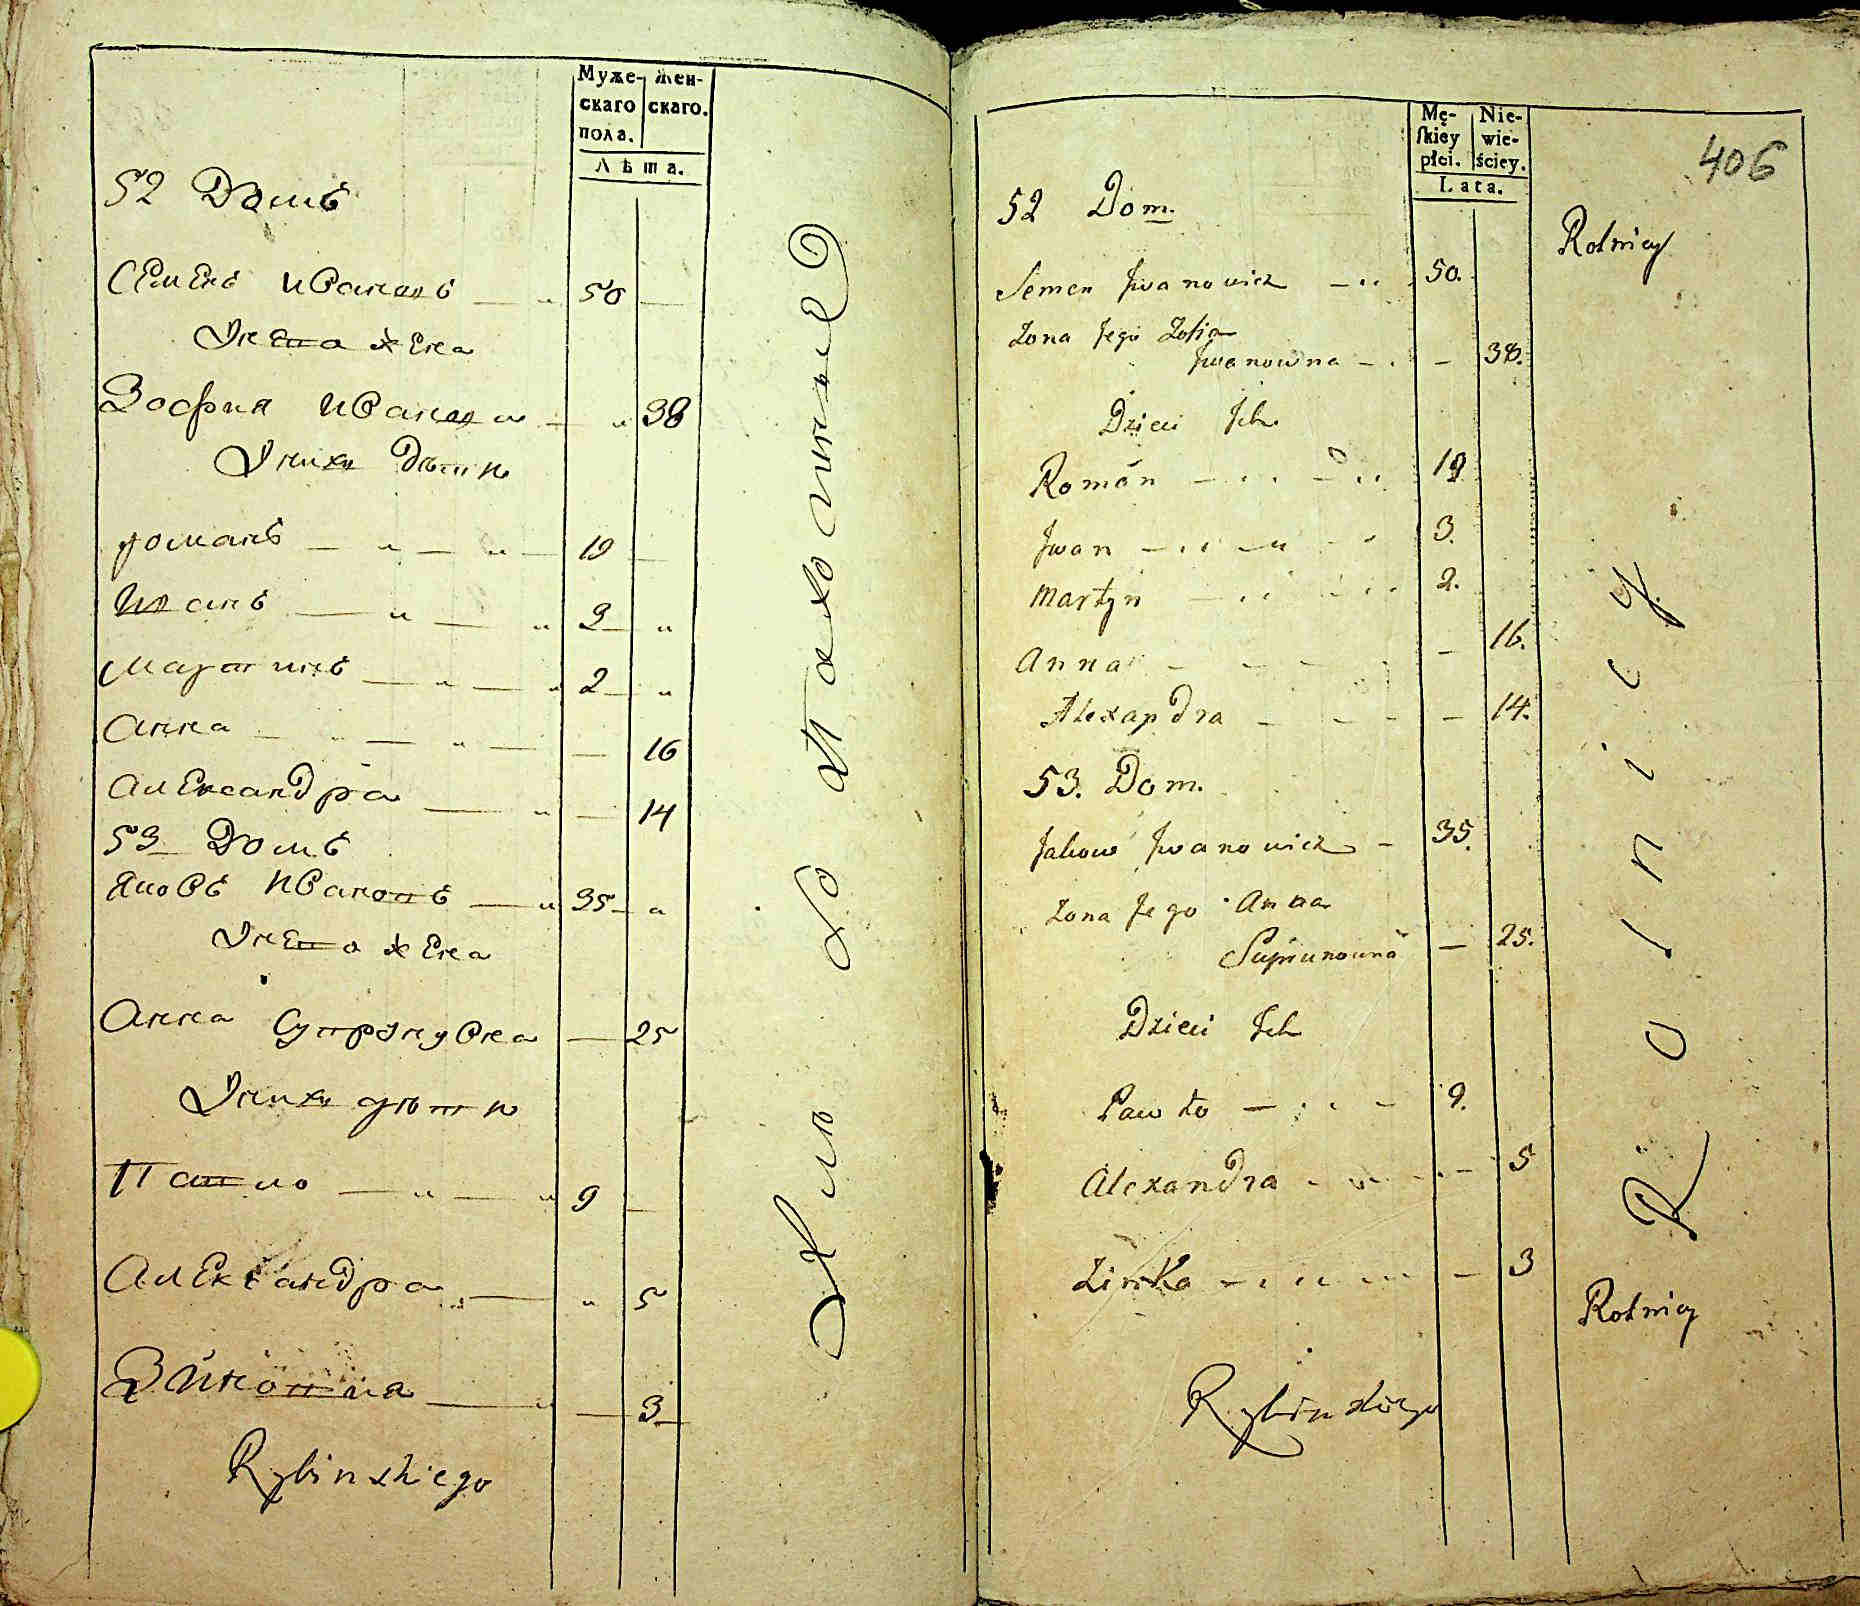 Муже- скаго пола.
Жен- скаго.
Лѣта.
52 Домъ
Семенъ Ивановъ 50
Онаго жена
Зофия Иванова 38
Оныхъ дѣти
Романъ 19
Иванъ 3
Мартинъ 2
Анна 16
Александра 14
53 Домъ
Яковъ Ивановъ 35
Онаго жена
Анна Супрунувна 25
Оныхъ дѣти
Павло 9
Александра 5
3
Rybinskiego
Mę- skiey płci.
Nie- wie- ściey.
Lata.
406
52 Dom.
Rolnicy
Semen Jwanowicz 50.
Zona Jego Zofia
Jwanowna 38.
Dzieci Jch
Roman 19
Jwan 3.
Martyn 2.
Anna 16.
Alexandra 14.
53. Dom.
Jakow Jwanowicz 35.
Zona Jego Anna
Suprunowna 25.
Dzieci Jch
Pawło 9.
Alexandra 5
Zinka 3
Rolnicy
Rolnicy
Rybinskiego